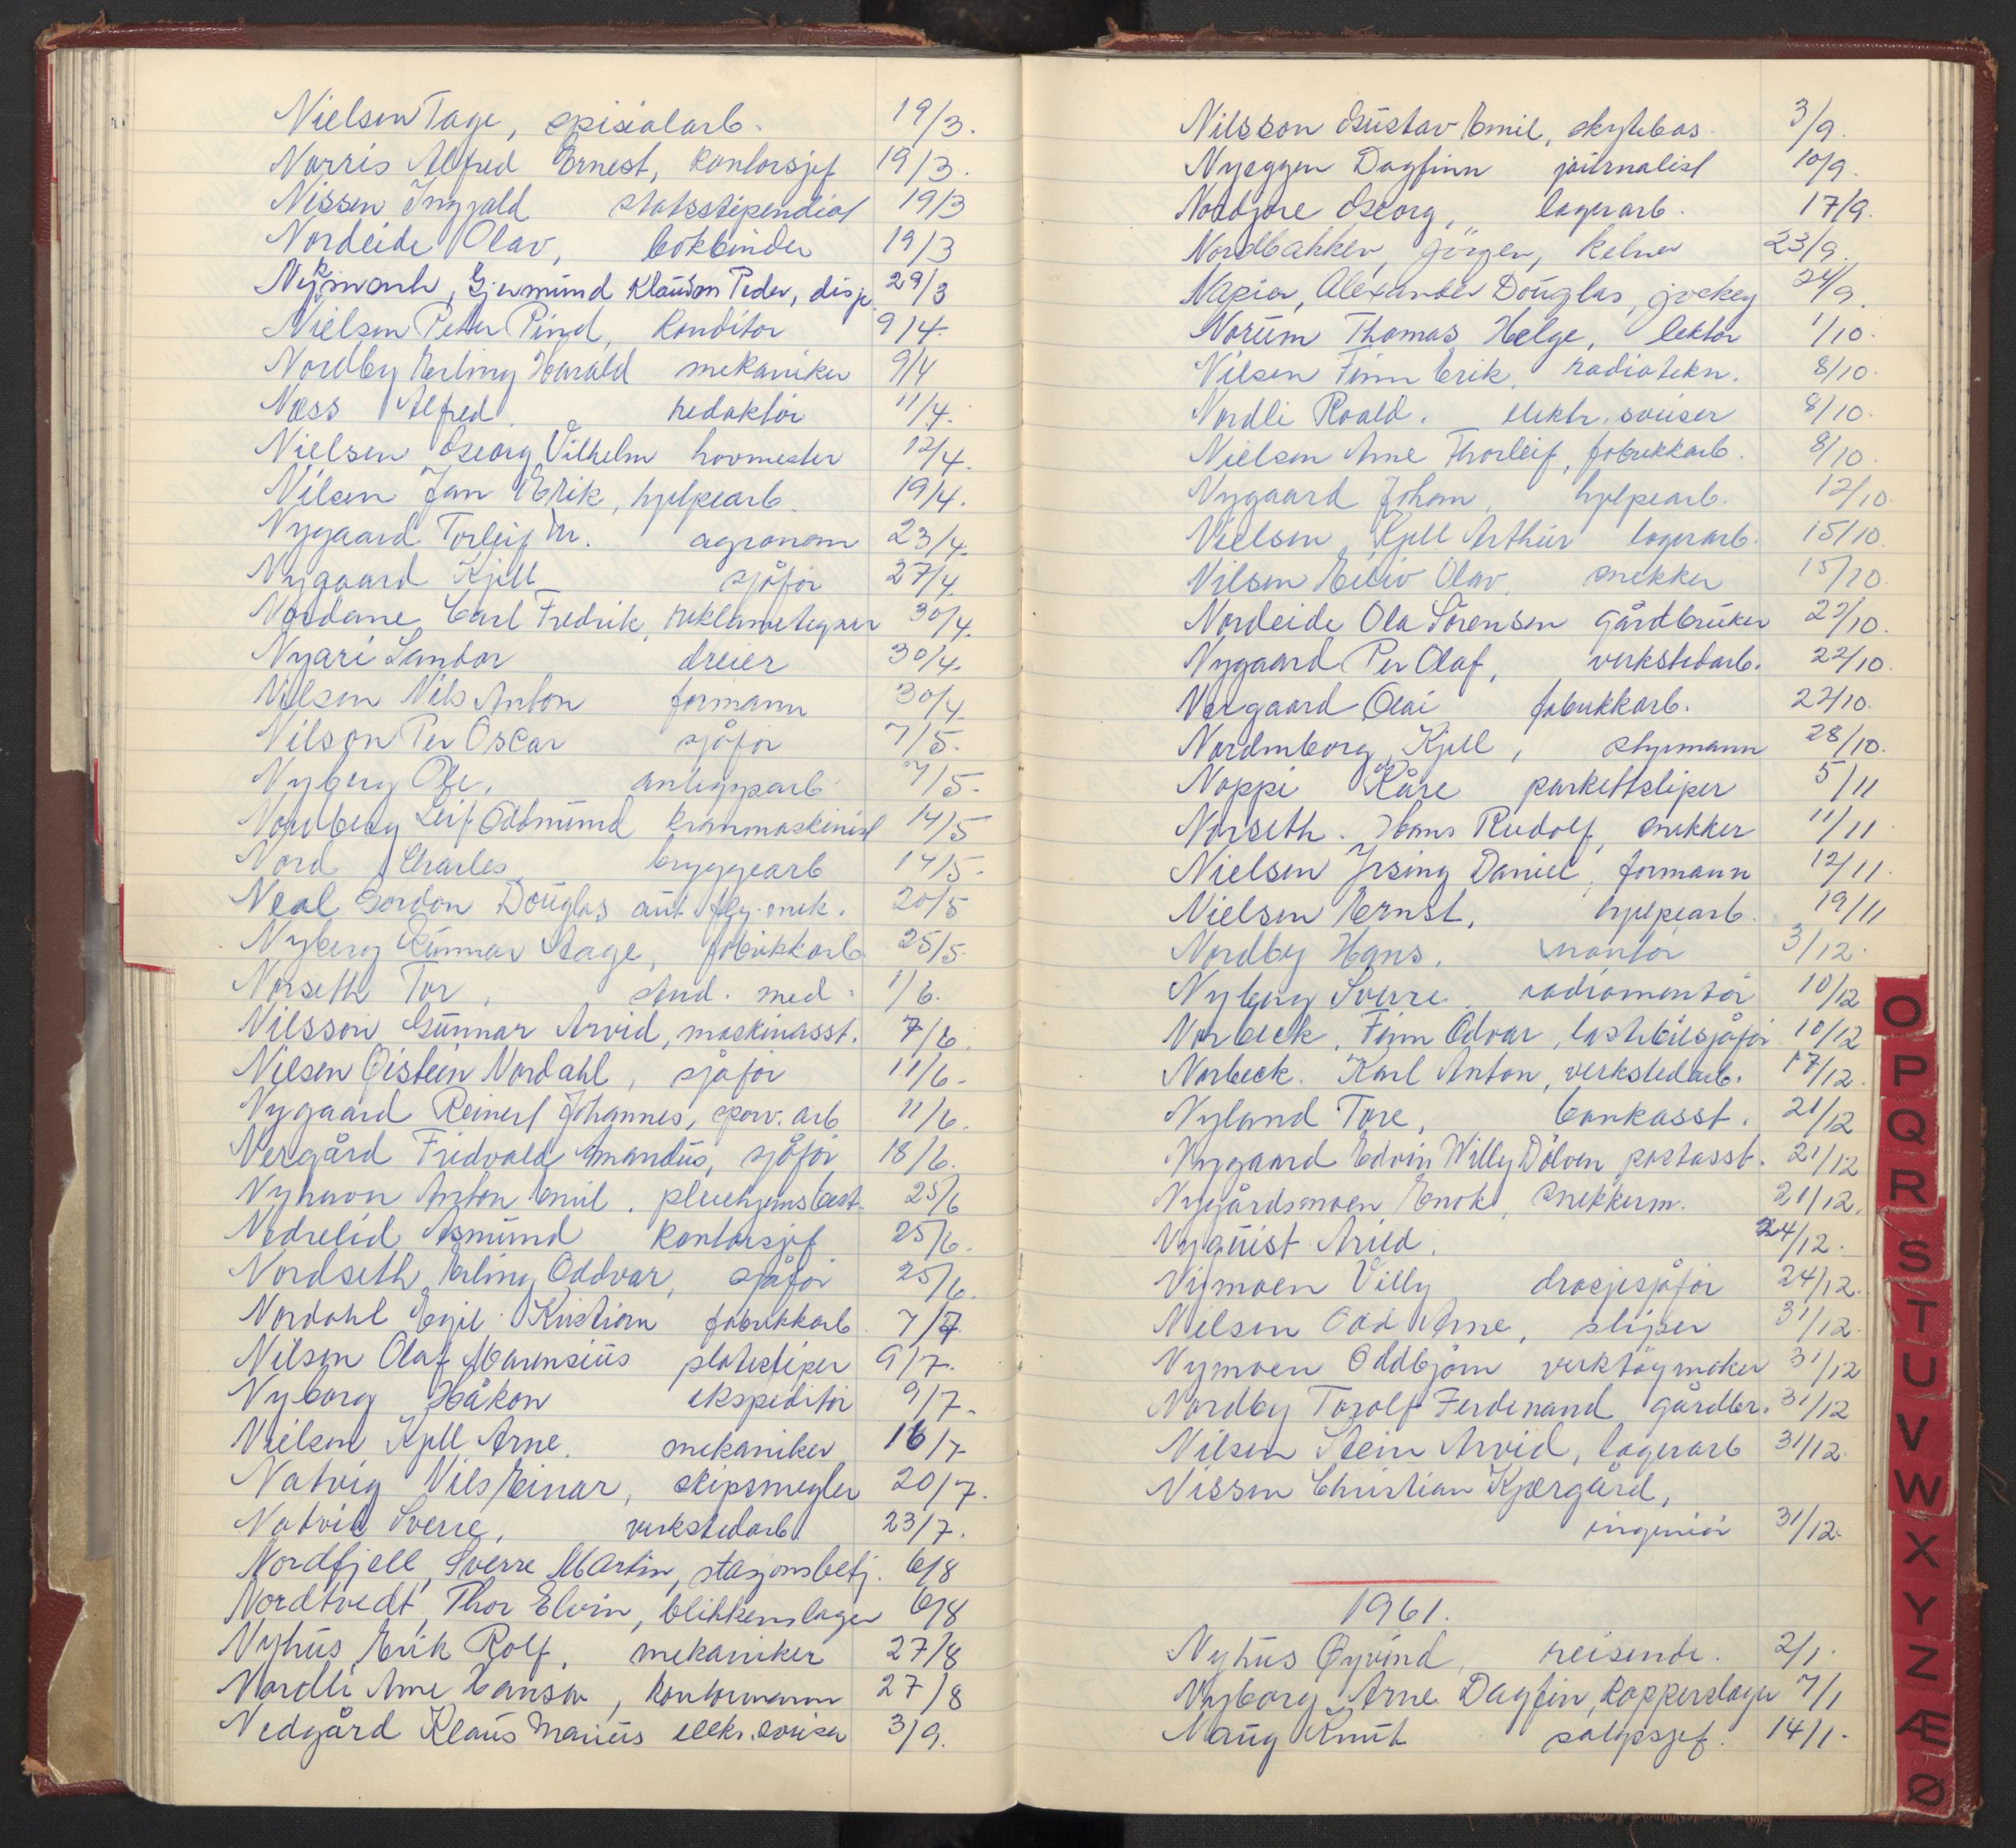 Nielsen Tage, spisialarb. 19/3.
Norris Alfred Ernest, kontorsjef 19/3.
Nissen Ingjald statsstipendiat 19/3
Nordeide Olav, bokbinder 19/3
Nykmark, Gjermund Klausen Peder, disp. 29/3
Nielsen Peter Pind, konditor 9/4.
Nordby Erling Harald mekaniker 9/4
Næss Alfred redaktör 11/4.
Nielsen Georg Vilhelm hovmester 12/4.
Nilsen Jan Erik, hjelpearb. 19/4.
Nygaard Torleif M. agronom 23/4.
Nygaard Kjell sjåför 27/4.
Nordane Carl Fredrik, reklametegner 30/4.
Nyari Sandor dreier 30/4.
Nilsen Nils Anton formann 30/4.
Nilson Per Oscar sjåför 7/5.
Nyberg Ole, anleggsarb. 7/5.
Nordberg Leif Oddmund kranmaskinist 14/5
Nord Charles, bryggearb 14/5.
Neal Gordon Douglas aut. fly.mek. 20/5
Nyberg Gunnar Aage, fabrikkarb. 25/5.
Norseth Tor, stud. med. 1/6.
Nilsson Gunnar Arvid, maskinasst. 7/6.
Nilsen Øistein Nordahl, sjåför 11/6.
Nygaard Reinert Johannes, sporv. arb 11/6.
Nergård Fridvald Amandus, sjåför 18/6.
Nyhavn Anton Emil, pleiehjemsbest. 25/6
Nedrelid Asmund kontorsjef 25/6.
Nordseth Erling Oddvar, sjåför 25/6.
Nordahl Egil Kristian fabrikkarb. 7/7.
Nilsen Olaf Marensius plateskiper 9/7.
Nyborg Håkon ekspeditör 9/7.
Nielsen Kjell Arne. mekaniker 16/7
Natvig Nils Einar, skipsmegler 20/7.
Natvik Sverre, verkstedarb. 23/7.
Nordfjell, Sverre Martin, stasjonsbetj. 6/8
Nordtvedt, Thor Elvin, blikkenslager 6/8
Nyhus Erik Rolf, mekaniker 27/8
Nordli Arne Hanson, kontormann 27/8
Nedgård Klaus Marius elektr. sveiser 3/9.
Nilsson Gustav Emil, skytebas. 3/9.
Nyeggen Dagfinn journalist 10/9.
Nordgore Georg, lagerarb. 17/9.
Nordbakken, Jörgen, kelner 23/9.
Napier, Alexander Douglas, jockey 24/9.
Norum Thomas Helge, lektor 1/10.
Nilsen Finn Erik, radiotekn. 8/10.
Nordli Roald. elektr. sveiser 8/10.
Nielsen Arne Thorleif, fabrikkarb. 8/10.
Nygaard Johan, hjelpearb. 12/10.
Nielsen, Kjell Arthur lagerarb. 15/10.
Nilsen Eiliv Olav, snekker 15/10.
Nordeide Ola Sörensen gårdbruker 22/10.
Nygaard Per Olaf, verkstedarb. 22/10.
Norgaard Olai fabrikkarb. 22/10.
Nordnborg, Kjell, styrmann 28/10.
Noppi Kåre parkettsliper 5/11
Norseth. Hans Rudolf, snekker 11/11
Nielsen Yrsing Daniel, formann 12/11.
Nielsen Ernst, hjelpearb. 19/11
Nordby Hans, montör 3/12.
Nyberg Sverre, radiomontör 10/12
Norbeck, Finn Odvar, lastebilsjåför 10/12
Norbeck. Karl Anton, verkstedarb. 17/12.
Nyland Tore, bankasst. 21/12
Nygaard Edvin Willy Dölven postasst. 21/12
Nygårdsmoen Enok, snekkerm. 21/12.
Nyquist Arild. 24/12.
Nymoen Villy drosjesjåför 24/12.
Nilsen Odd Arne, sliper 31/12.
Nymoen Oddbjörn verktöymaker 31/12
Nordby Torolf Ferdinand gårdbr. 31/12
Nilsen Stein Arvid, lagerarb 31/12.
Nissen Christian Kjærgård,
ingeniör 31/12.
1961.
Nyhus Øyvind, reisende. 2/1.
Nyborg Arne Dagfin, kopperslager 7/1
Naug Knut salgssjef. 14/1.
O
P
Q
R
S
T
U
V
W
X
Y
Z
Æ
Ø